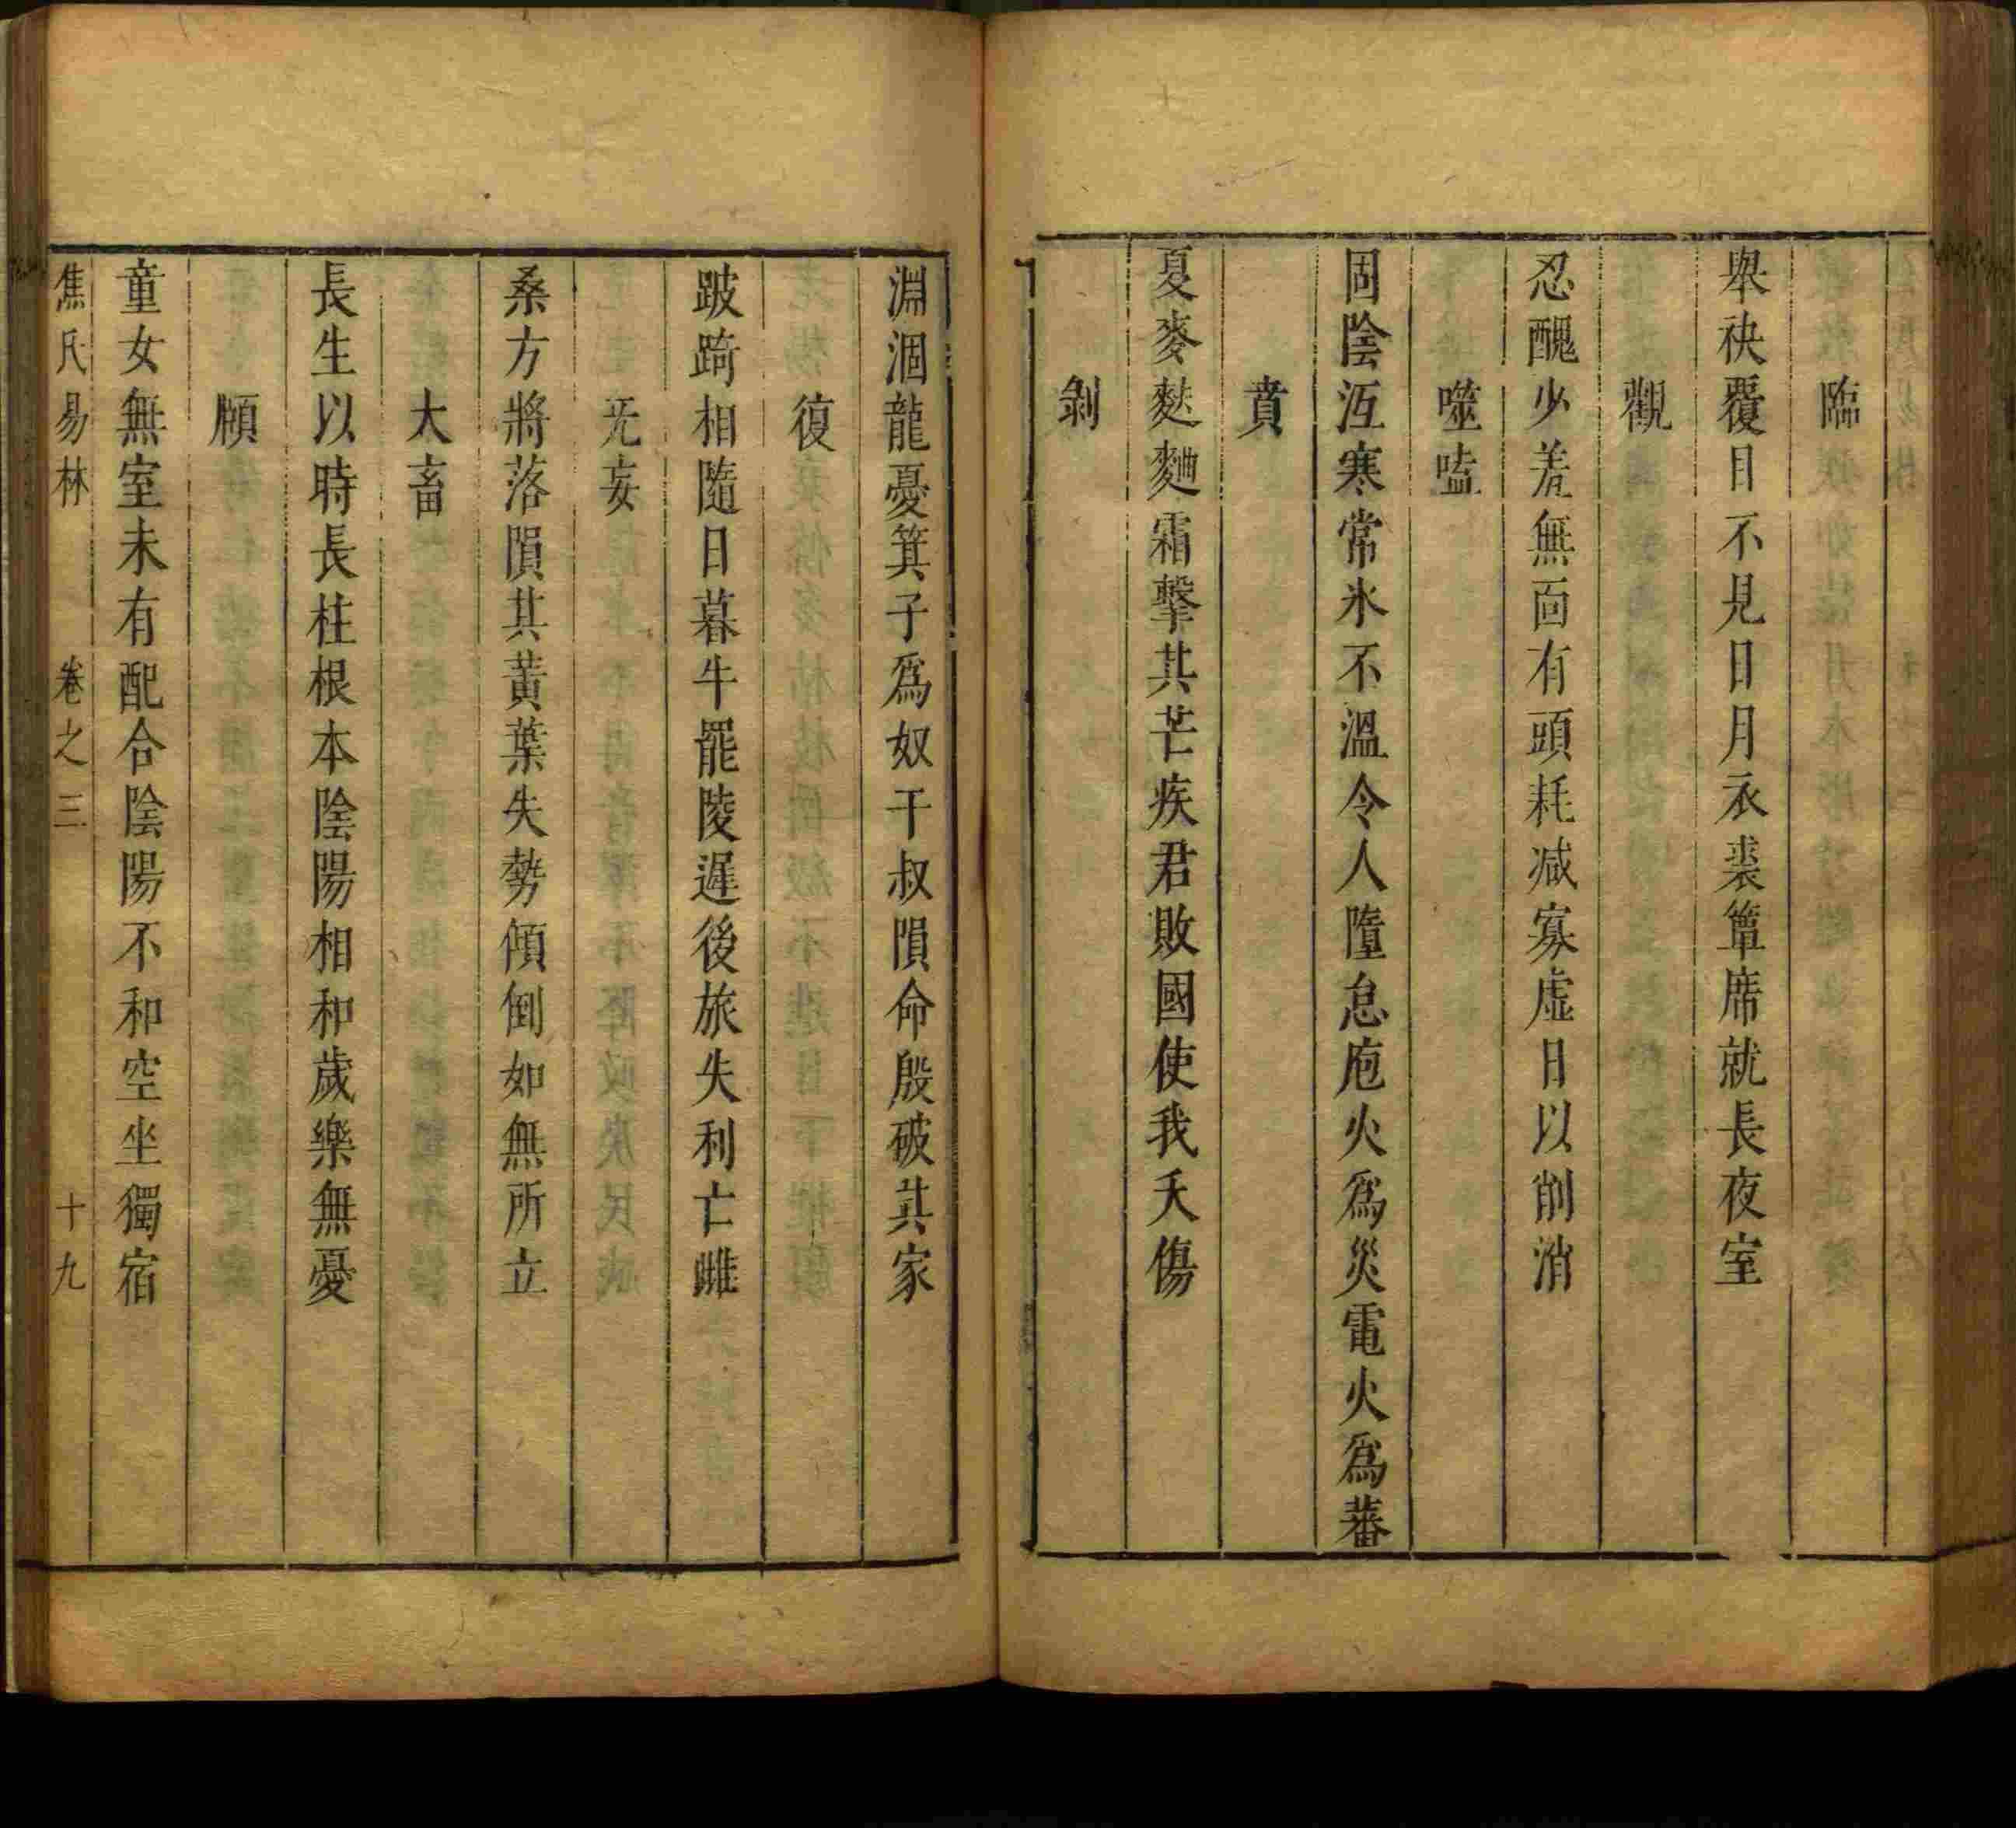 臨
舉袂覆目不見日月衣裘簟席就長夜室
觀
忍醜少羞無面有頭耗減寡虛日以削消
噬嗑
固陰沍寒常氷不溫令人隋怠庖火為災電火為蕃
賁
夏麥麩麯霜擊其芒疾君敗國使我夭傷
剝
淵涸龍憂箕子為奴干叔隕命殷破其家
復
跛踦相隨日暮牛罷陵遲後旅失利亡雌
旡妄
桑方將落隕其黃葉失勢傾倒如無所立
大畜
長生以時長柱根本陰陽相和歲樂無憂
頤
童女無室未有配合陰陽不和空坐獨宿
焦氏易林 卷之三 十九